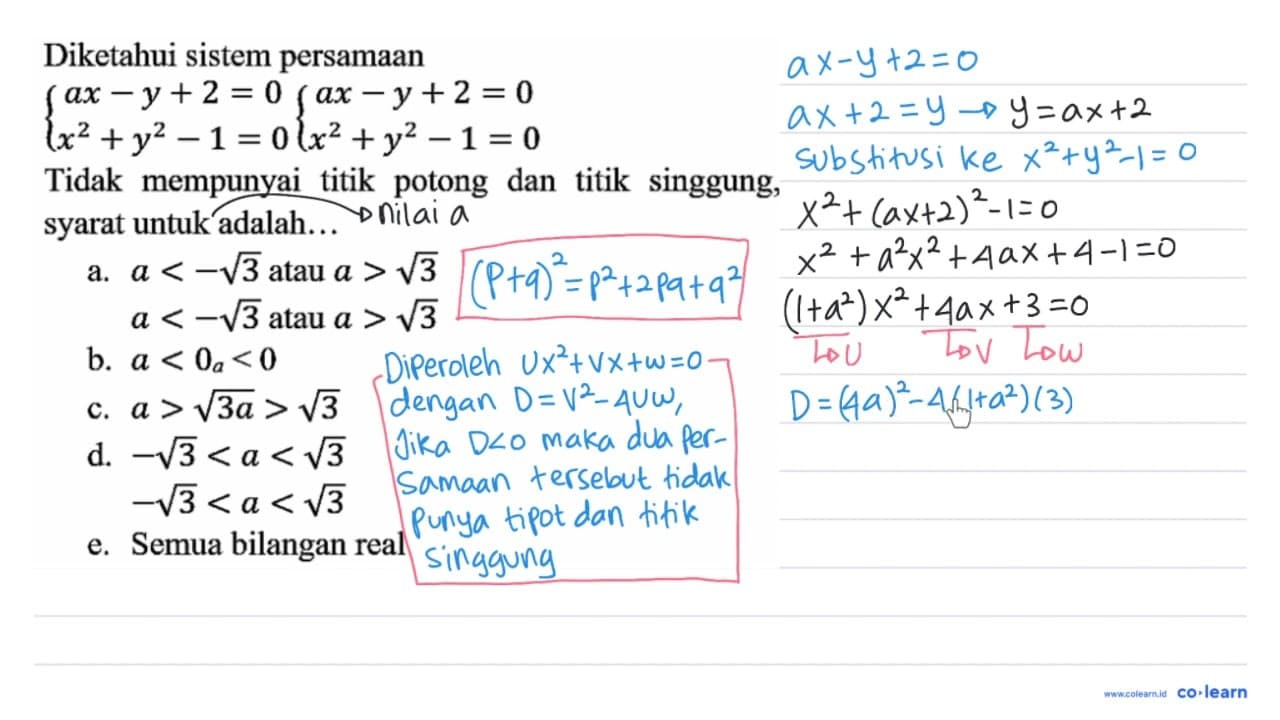 Diketahui sistem persamaan
{ax − y + 2 = 0 {ax − y + 2 = 0
{x² + y² − 1 = 0 {x² + y² − 1 = 0
Tidak mempunyai titik potong dan titik singgung,
syarat untuk adalah... → nilai a
a. a < −√3 atau a > √3
a < −√3 atau a > √3
b. a < 0ₐ < 0
c. a > √3a > √3
d. −√3 < a < √3
−√3 < a < √3
e. Semua bilangan real
(p+q)² = p²+2pq+q²
Diperoleh Ux²+Vx+W=0
dengan D = V²−4UW,
Jika D<0 maka dua per-
samaan tersebut tidak
punya tipot dan titik
singgung
ax−y+2=0
ax+2=y → y=ax+2
substitusi ke x²+y²−1=0
x²+(ax+2)²−1=0
x²+a²x²+4ax+4−1=0
(1+a²)x²+4ax+3=0
↳U ↳V ↳W
D=(4a)²−4(1+a²)(3)
www.colearn.id co·learn